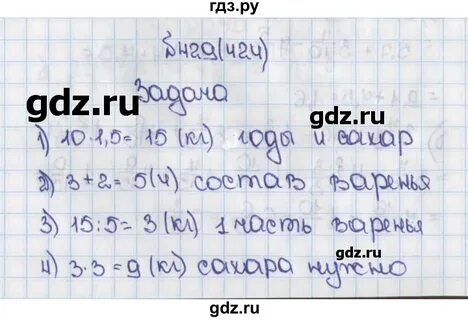 гдз.ру
Б429(424)
Задача
1) 10·1,5= 15 (кг) ягоды и сахар
2) 3+2= 5(ч) состав варенья
3) 15:5= 3 (кг) 1 часть варенья
4) 3·3=9 (кг) сахара нужно
gdz.ru
gdz.ru
gdz.ru
gdz.ru
gdz.ru